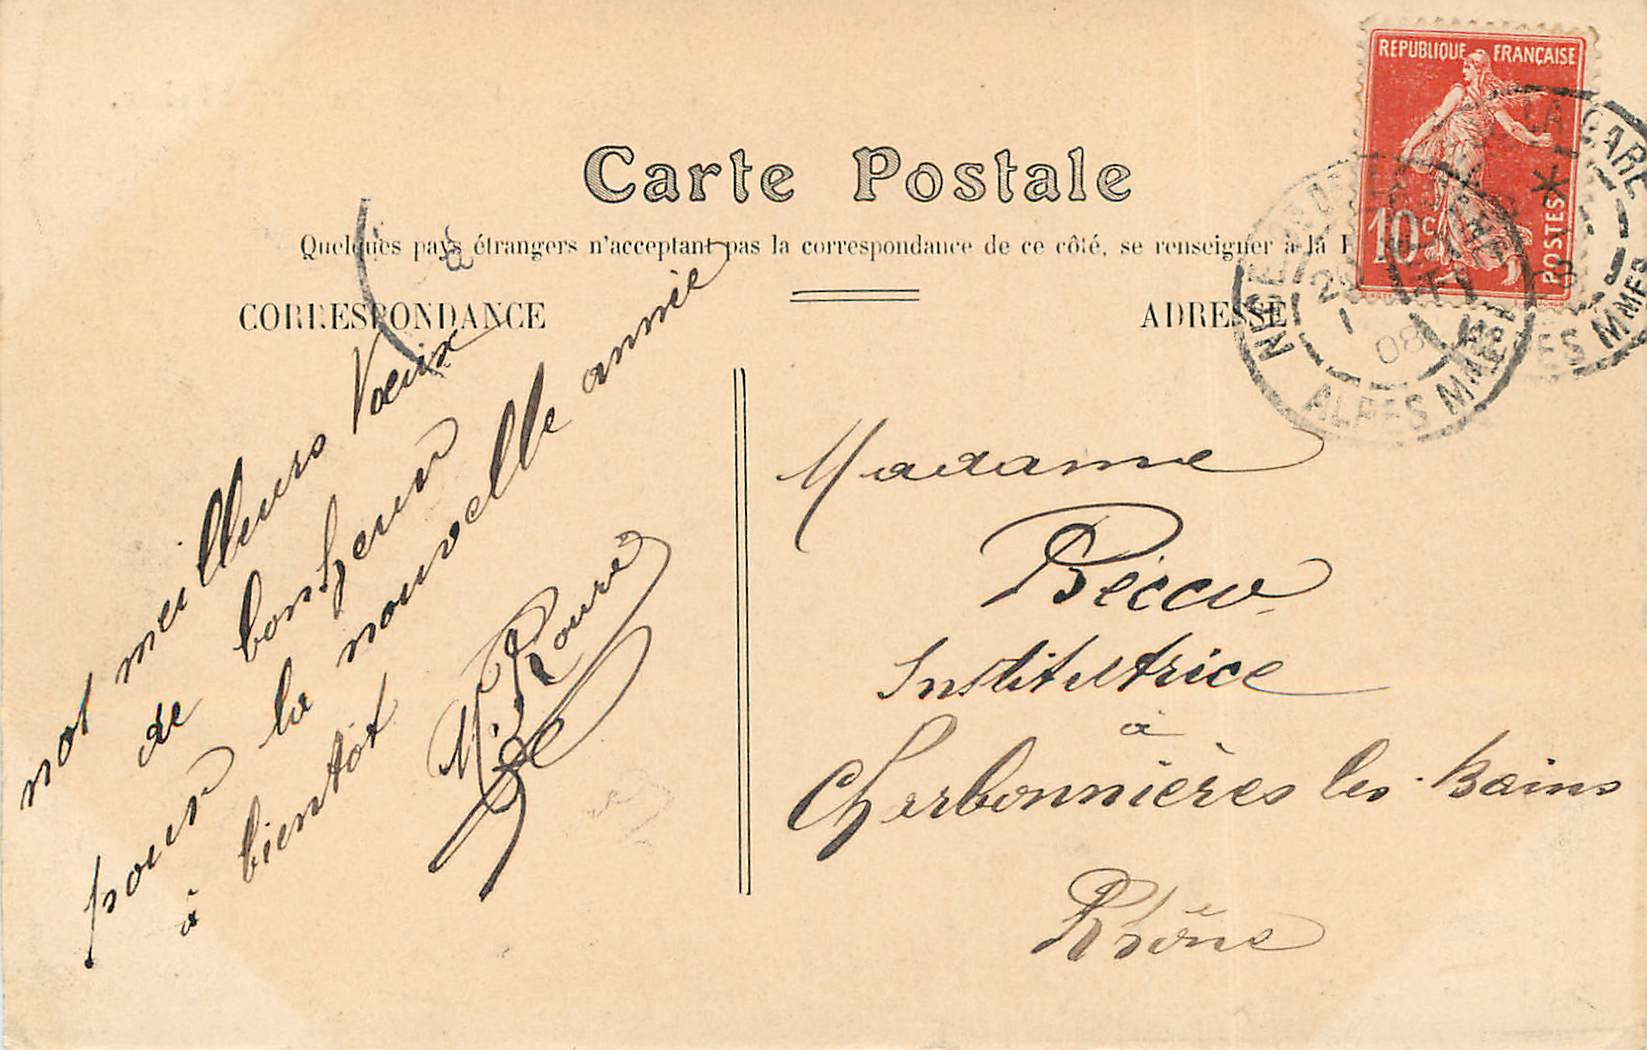 REPUBLIQUE FRANÇAISE
10c
POSTES
Carte Postale
Quelques pays étrangers n'acceptant pas la correspondance de ce côté, se renseigner à la
CORRESPONDANCE
ADRESSE
NICE
LA GARE
08
ALPES MMES
not meilleurs Voeux
de bonheur
pour la nouvelle année
à bientôt
M. Roure
Madame
Béccu
Institutrice
à
Charbonnières les Bains
Rhône